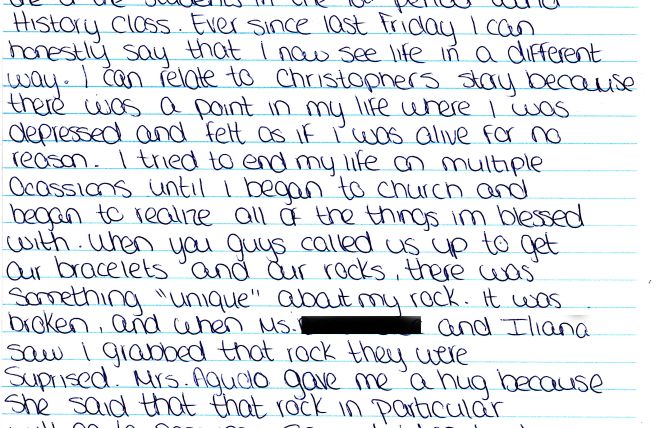 History class. Ever since last Friday I can
honestly say that I now see life in a different
way. I can relate to Christophers story because
there was a point in my life where I was
depressed and felt as if I was alive for no
reason. I tried to end my life on multiple
Ocassions until I began to church and
began to realize all of the things im blessed
with. When you guys called us up to get
our bracelets and our rocks, there was
something "unique" about my rock. It was
broken, and when Ms. and Iliana
saw I grabbed that rock they were
Suprised. Mrs. Agudo gave me a hug because
She said that that rock in particular